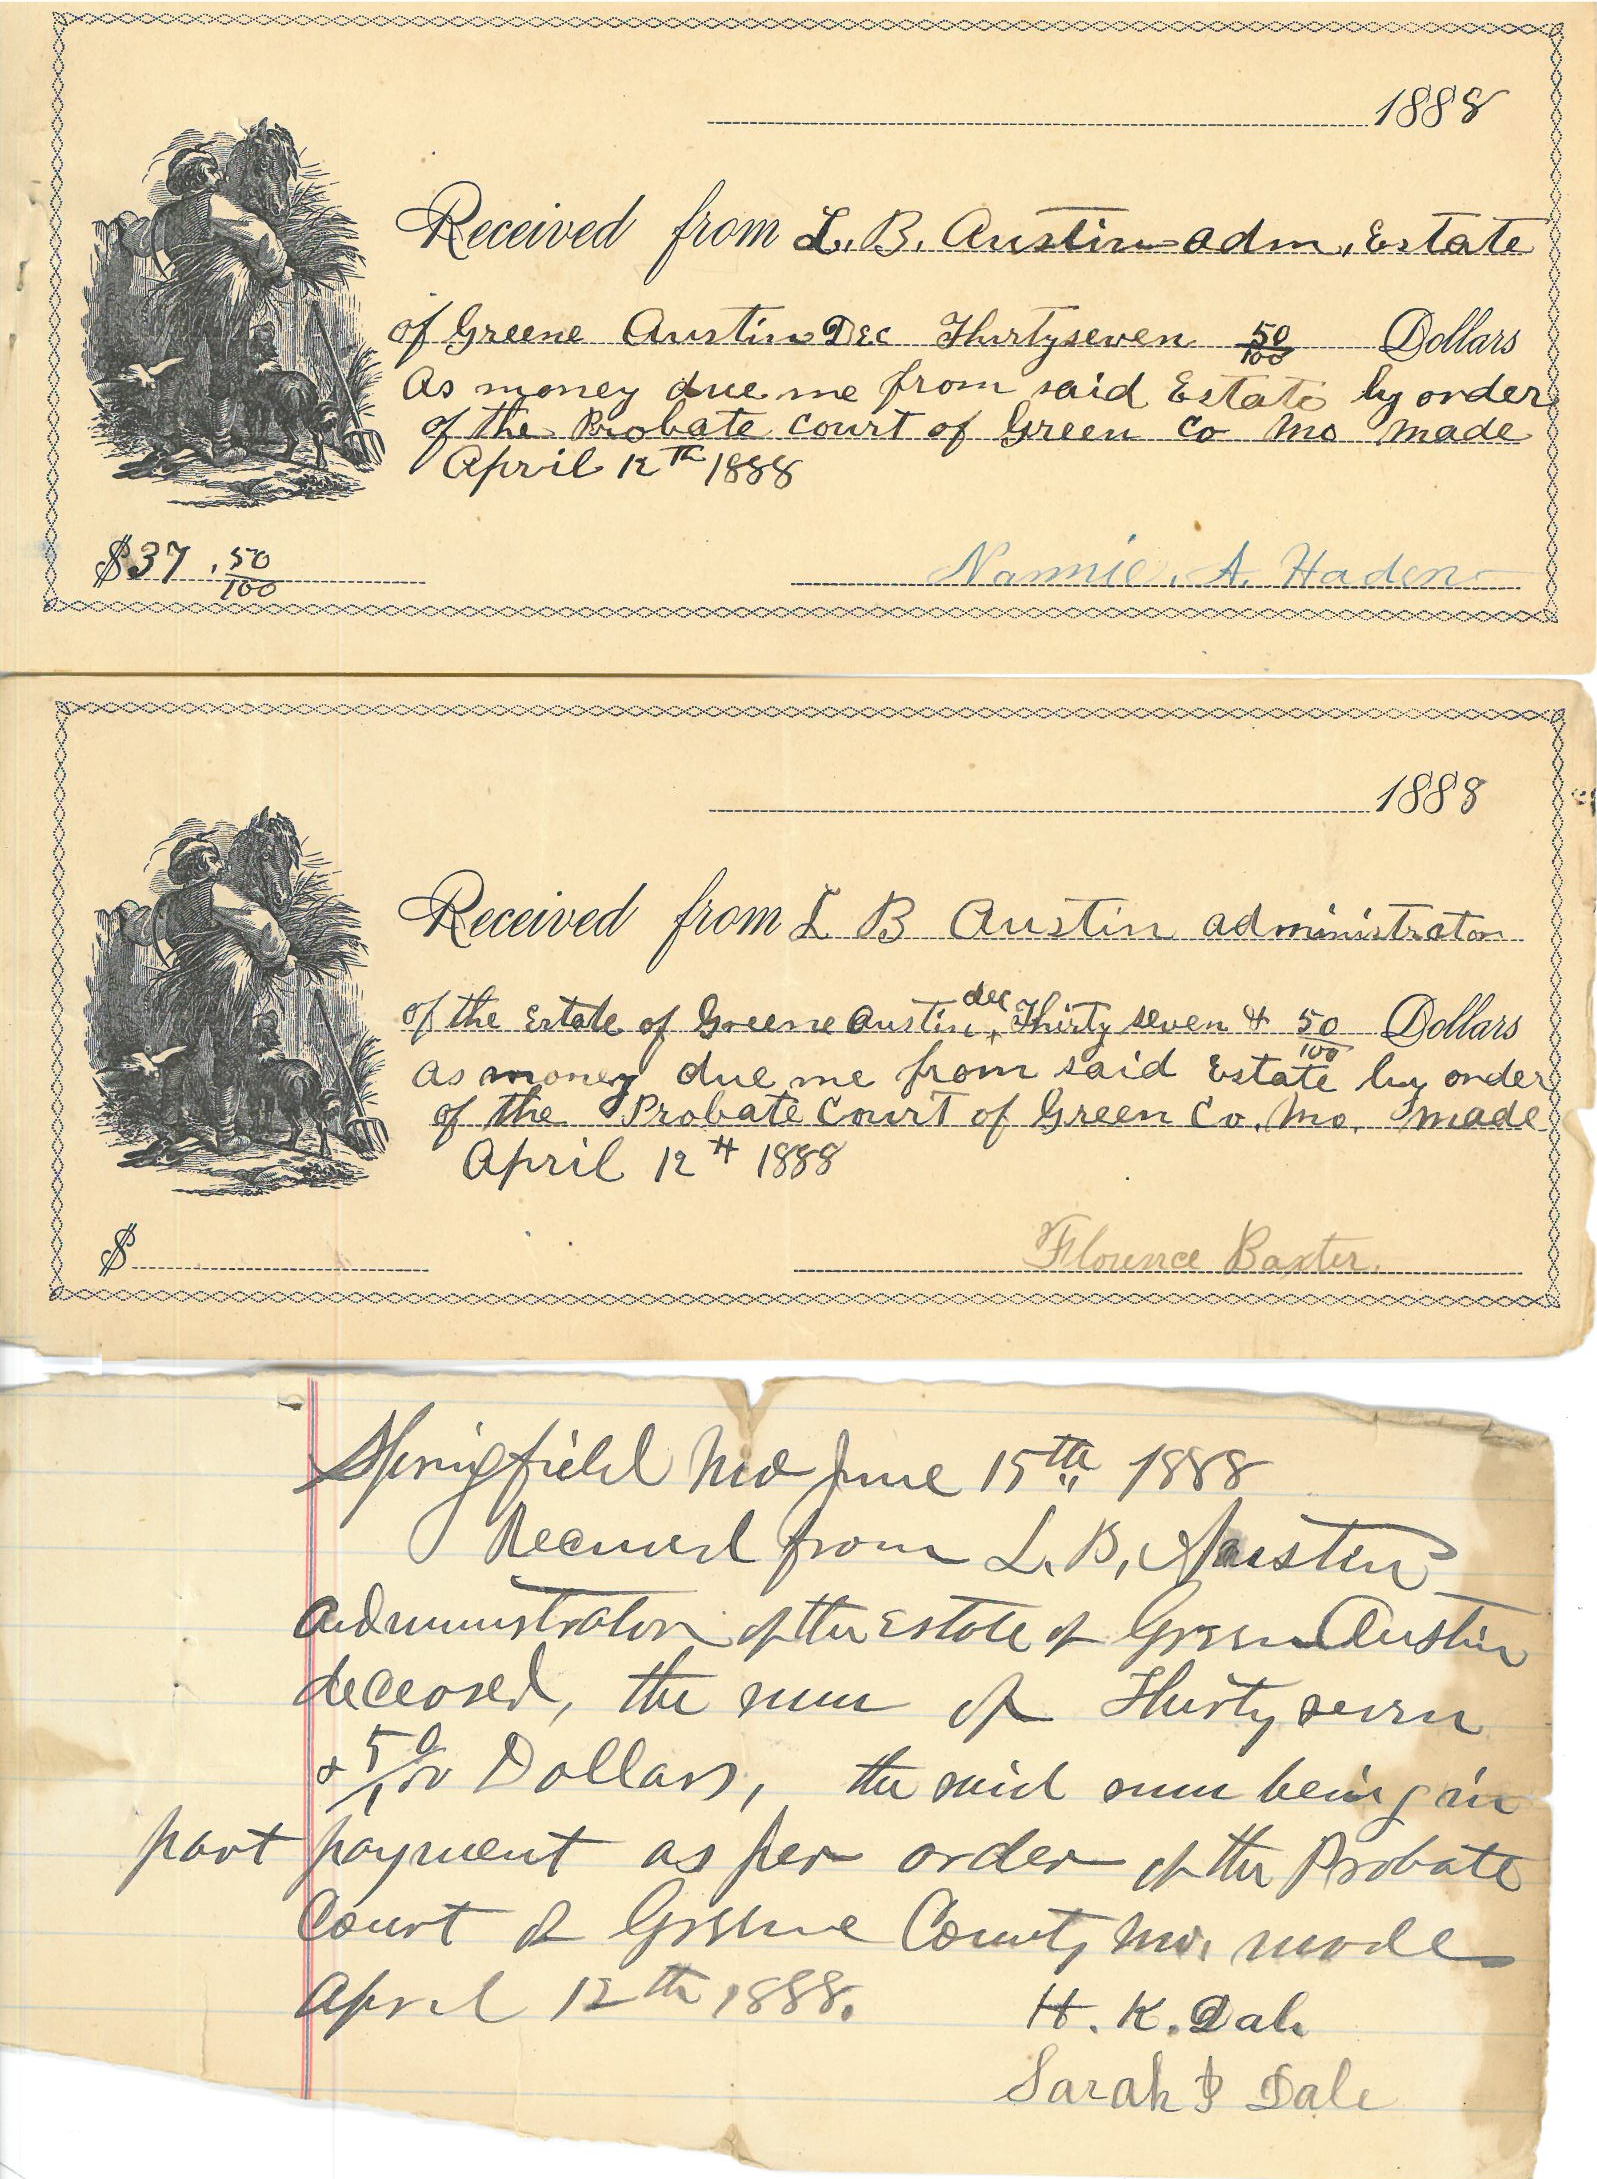 1888
Received from L. B. Austin adm, Estate
of Greene Austin Dec Thirtyseven 50/100 Dollars
As money due me from said Estate by order
of the Probate Court of Green Co Mo made
April 12th 1888
$37.50/100
Nannie. A. Haden
1888
Received from L B Austin administrator
of the Estate of Greene Austin, dec Thirty seven & 50/100 Dollars
as money due me from said Estate by order
of the Probate Court of Green Co. Mo. made
April 12th 1888
$
Florence Baxter.
Springfield Mo June 15th 1888
Received from L. B. Austin
administrator of the Estate of Green Austin
deceased, the sum of Thirty seven
& 50/100 Dollars, the said sum being in
part payment as per order of the Probate
Court of Greene County Mo. made
April 12th 1888.
H. K. Dale
Sarah Dale